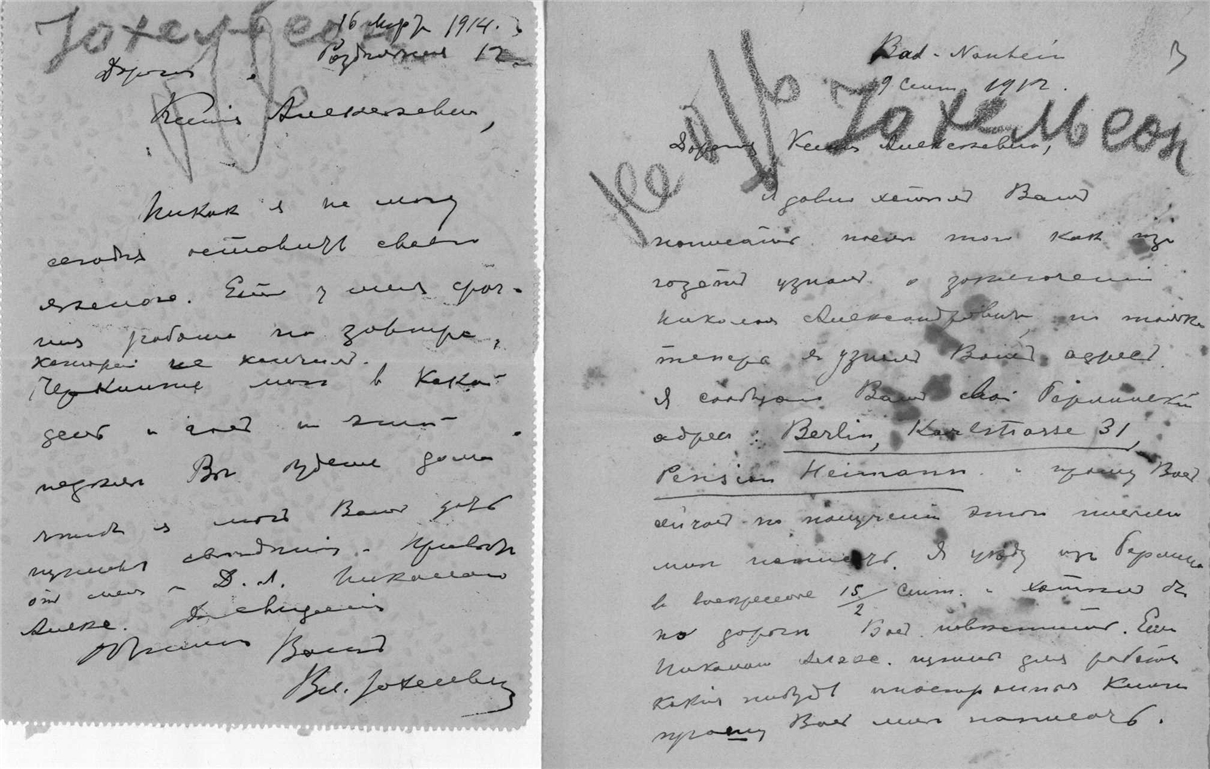 Іохельсон
16 март 1914.
12
Дорогая
Ксенія Алексеевна,
Никак я не могу
сегодня оставить своего
Есть у меня сроч-
ная работа на завтра,
которой не кончил.
Черкните мне в какой
день и час на этой
неделе Вы будете дома
чтоб я мог Вам дать
нужныя сведенія. Привет
от меня Николаю
Алекс. До свиданія
Ваш
Вл. Іохельсон
Іохельсон
Bad-Nauheim
9 Сент. 1912.
Дорогая Ксенія Алексеевна,
Я давно хотел Вам
написать после того как из
газет узнал о заключеніи
Николая Александровича, но только
теперь я узнал Ваш адрес.
Я сообщаю Вам свой Берлинскій
адрес: Berlin, Karlstrasse 31,
Pension Heimann и прошу Вас
сейчас по полученіи этого письма
мне написать. Я уезжаю из Берлина
в воскресенье 15/2 Сент. и хотел бы
по дороге Вас повидать. Если
Николаю Алекс. нужна для работы
какая нибудь иностранная книга
прошу Вас мне написать.